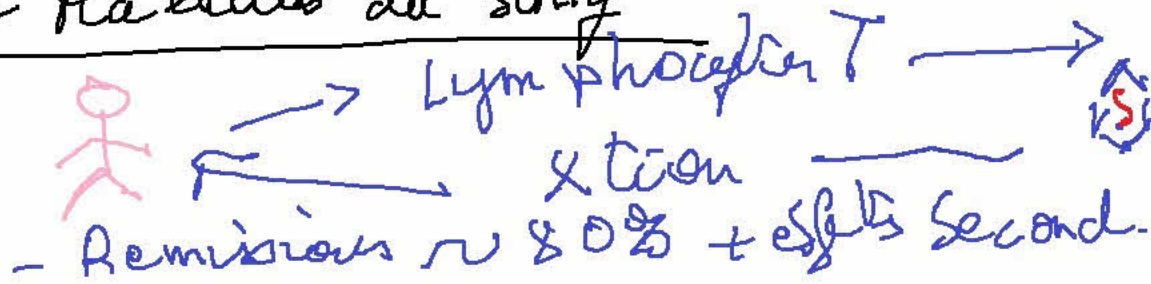 - Maladies du sang
Lymphocytes T
S
xtion
- Remissions ~ 80% + effets Second.